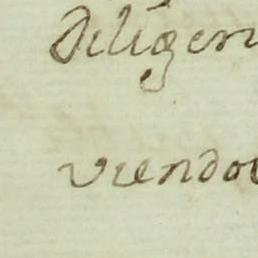 Diligen
viendo